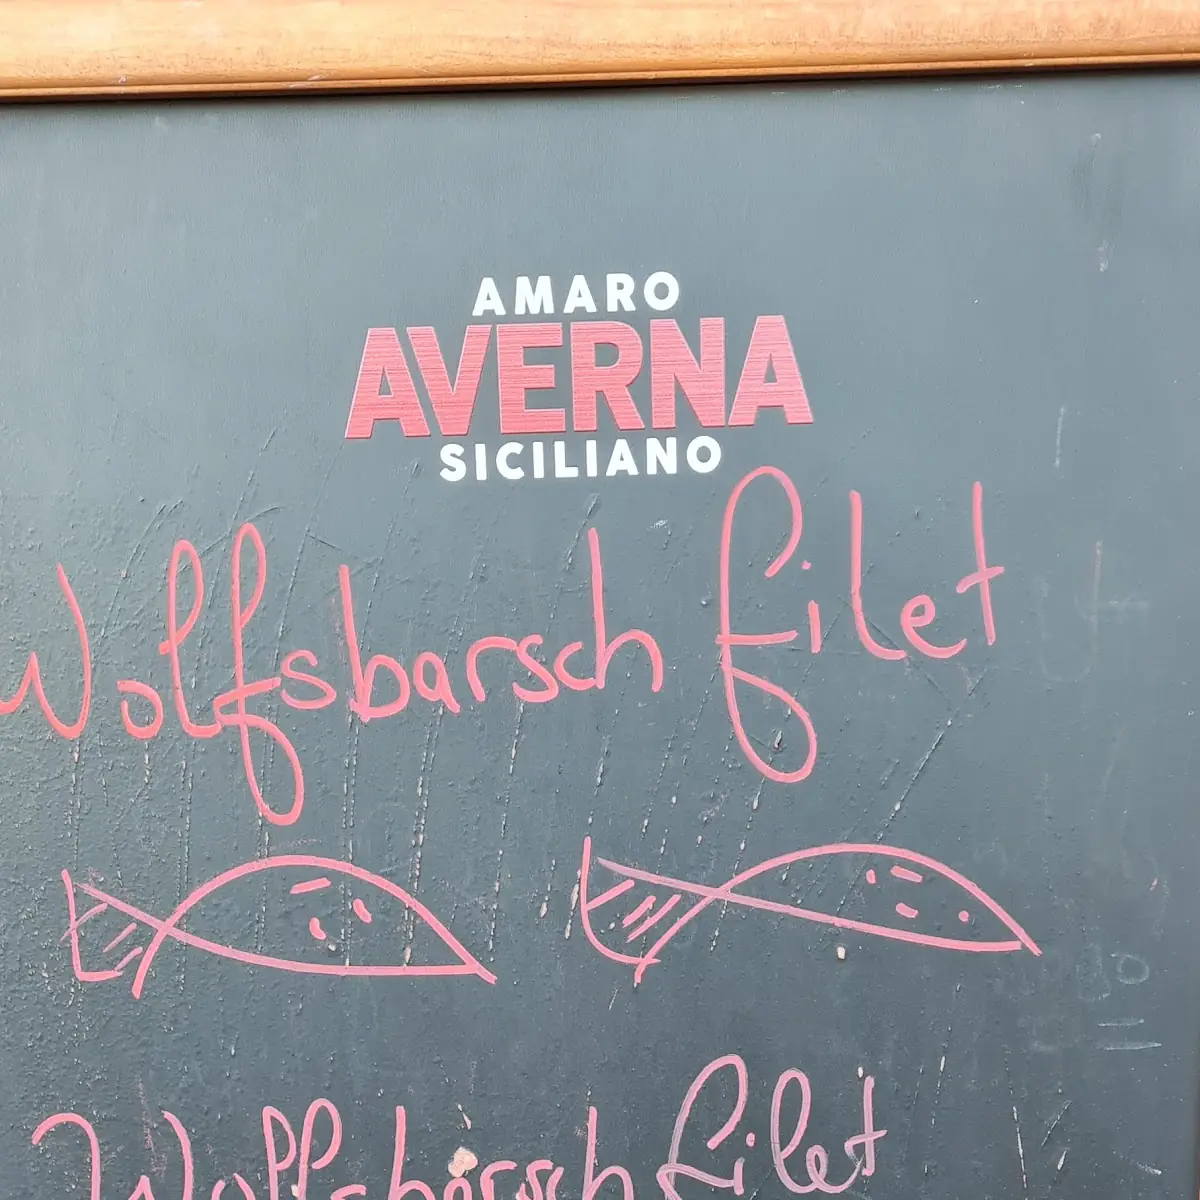 AMARO
AVERNA
SICILIANO
Wolfsbarsch filet
Wolfsbarsch filet